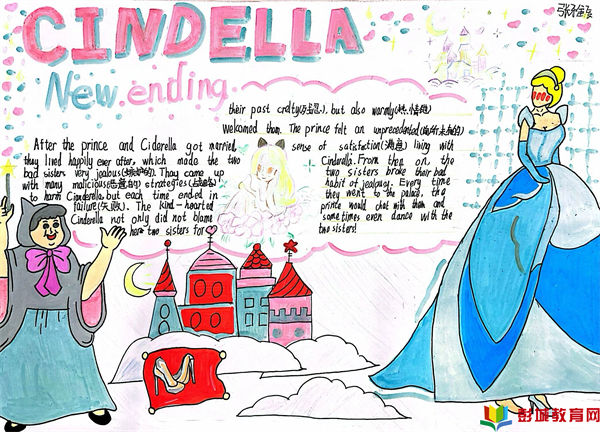 CINDELLA
New ending
After the prince and Ciderella got married,
they lived happily ever after, which made the two
bad sisters very jealous
They came up
with many malicious(恶毒的) strategies
to harm Cinderella, but each time ended in
failure(失败). The kind-hearted
Cinderella not only did not blame
here two sisters for
their past crdlty, but also warmly
Welcomed them. The prince felt an unprecedented
sense of satisfaction(满意) living with
Cinderella. From then on, the
two sisters broke their bad
habit of jealousy. Every time
they went to the palace, the
prince would chat with them and
sometimes even dance with the
two sisters!
彭城教育网